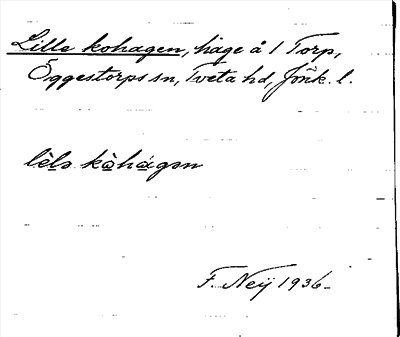 Lille kohagen, häge å 1 Torp,
Öggestorps sn, Tveta hd, Jönk. l.
lèlə kòhágən
F. Neÿ 1936